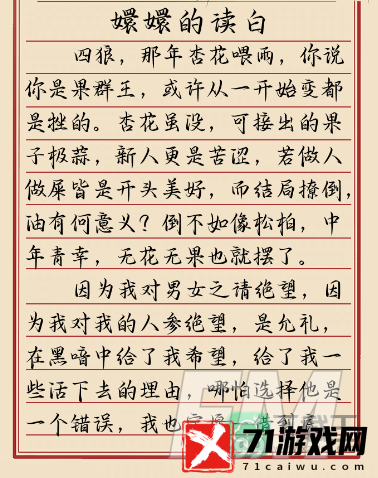 嬛嬛的读白
四狼，那年杏花喂雨，你说
你是果群王，或许从一开始变都
是挫的。杏花虽没，可接出的果
子极蒜，新人更是苦涩，若做人
做屎皆是开头美好，而结局撩倒，
油有何意义？倒不如像松柏，中
年青幸，无花无果也就摆了。
因为我对男女之请绝望，因
为我对我的人参绝望，是允礼，
在黑喑中给了我希望，给了我一
些活下去的埋由，哪怕选择他是
一个错误，我也
71游戏网
www.71caiwu.com